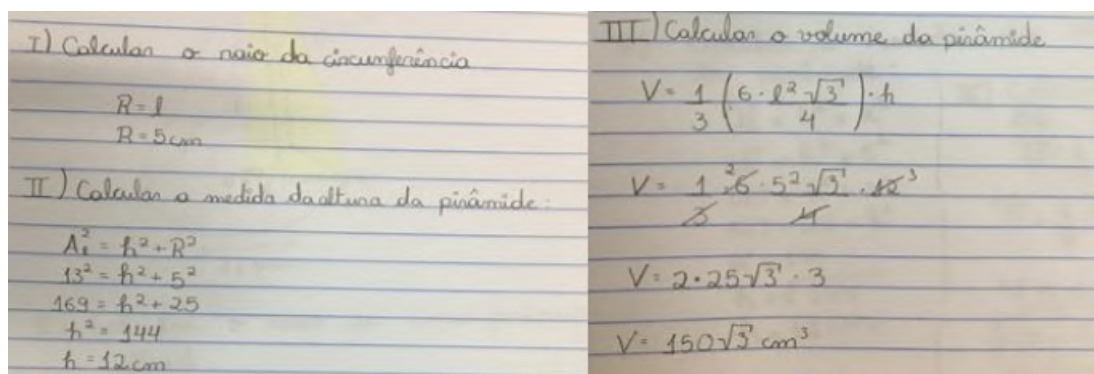 I) Calcular o raio da circunferência
R = l
R = 5 cm
II) Calcular a medida da altura da pirâmide:
A₁² = h² + R²
13² = h² + 5²
169 = h² + 25
h² = 144
h = 12 cm
III) Calcular o volume da pirâmide
V = 1/3 (6 · l²√3/4) · h
V = 1/3 · ²6 · 5²√3/4 · 12 ³
V = 2 · 25√3 · 3
V = 150√3 cm³